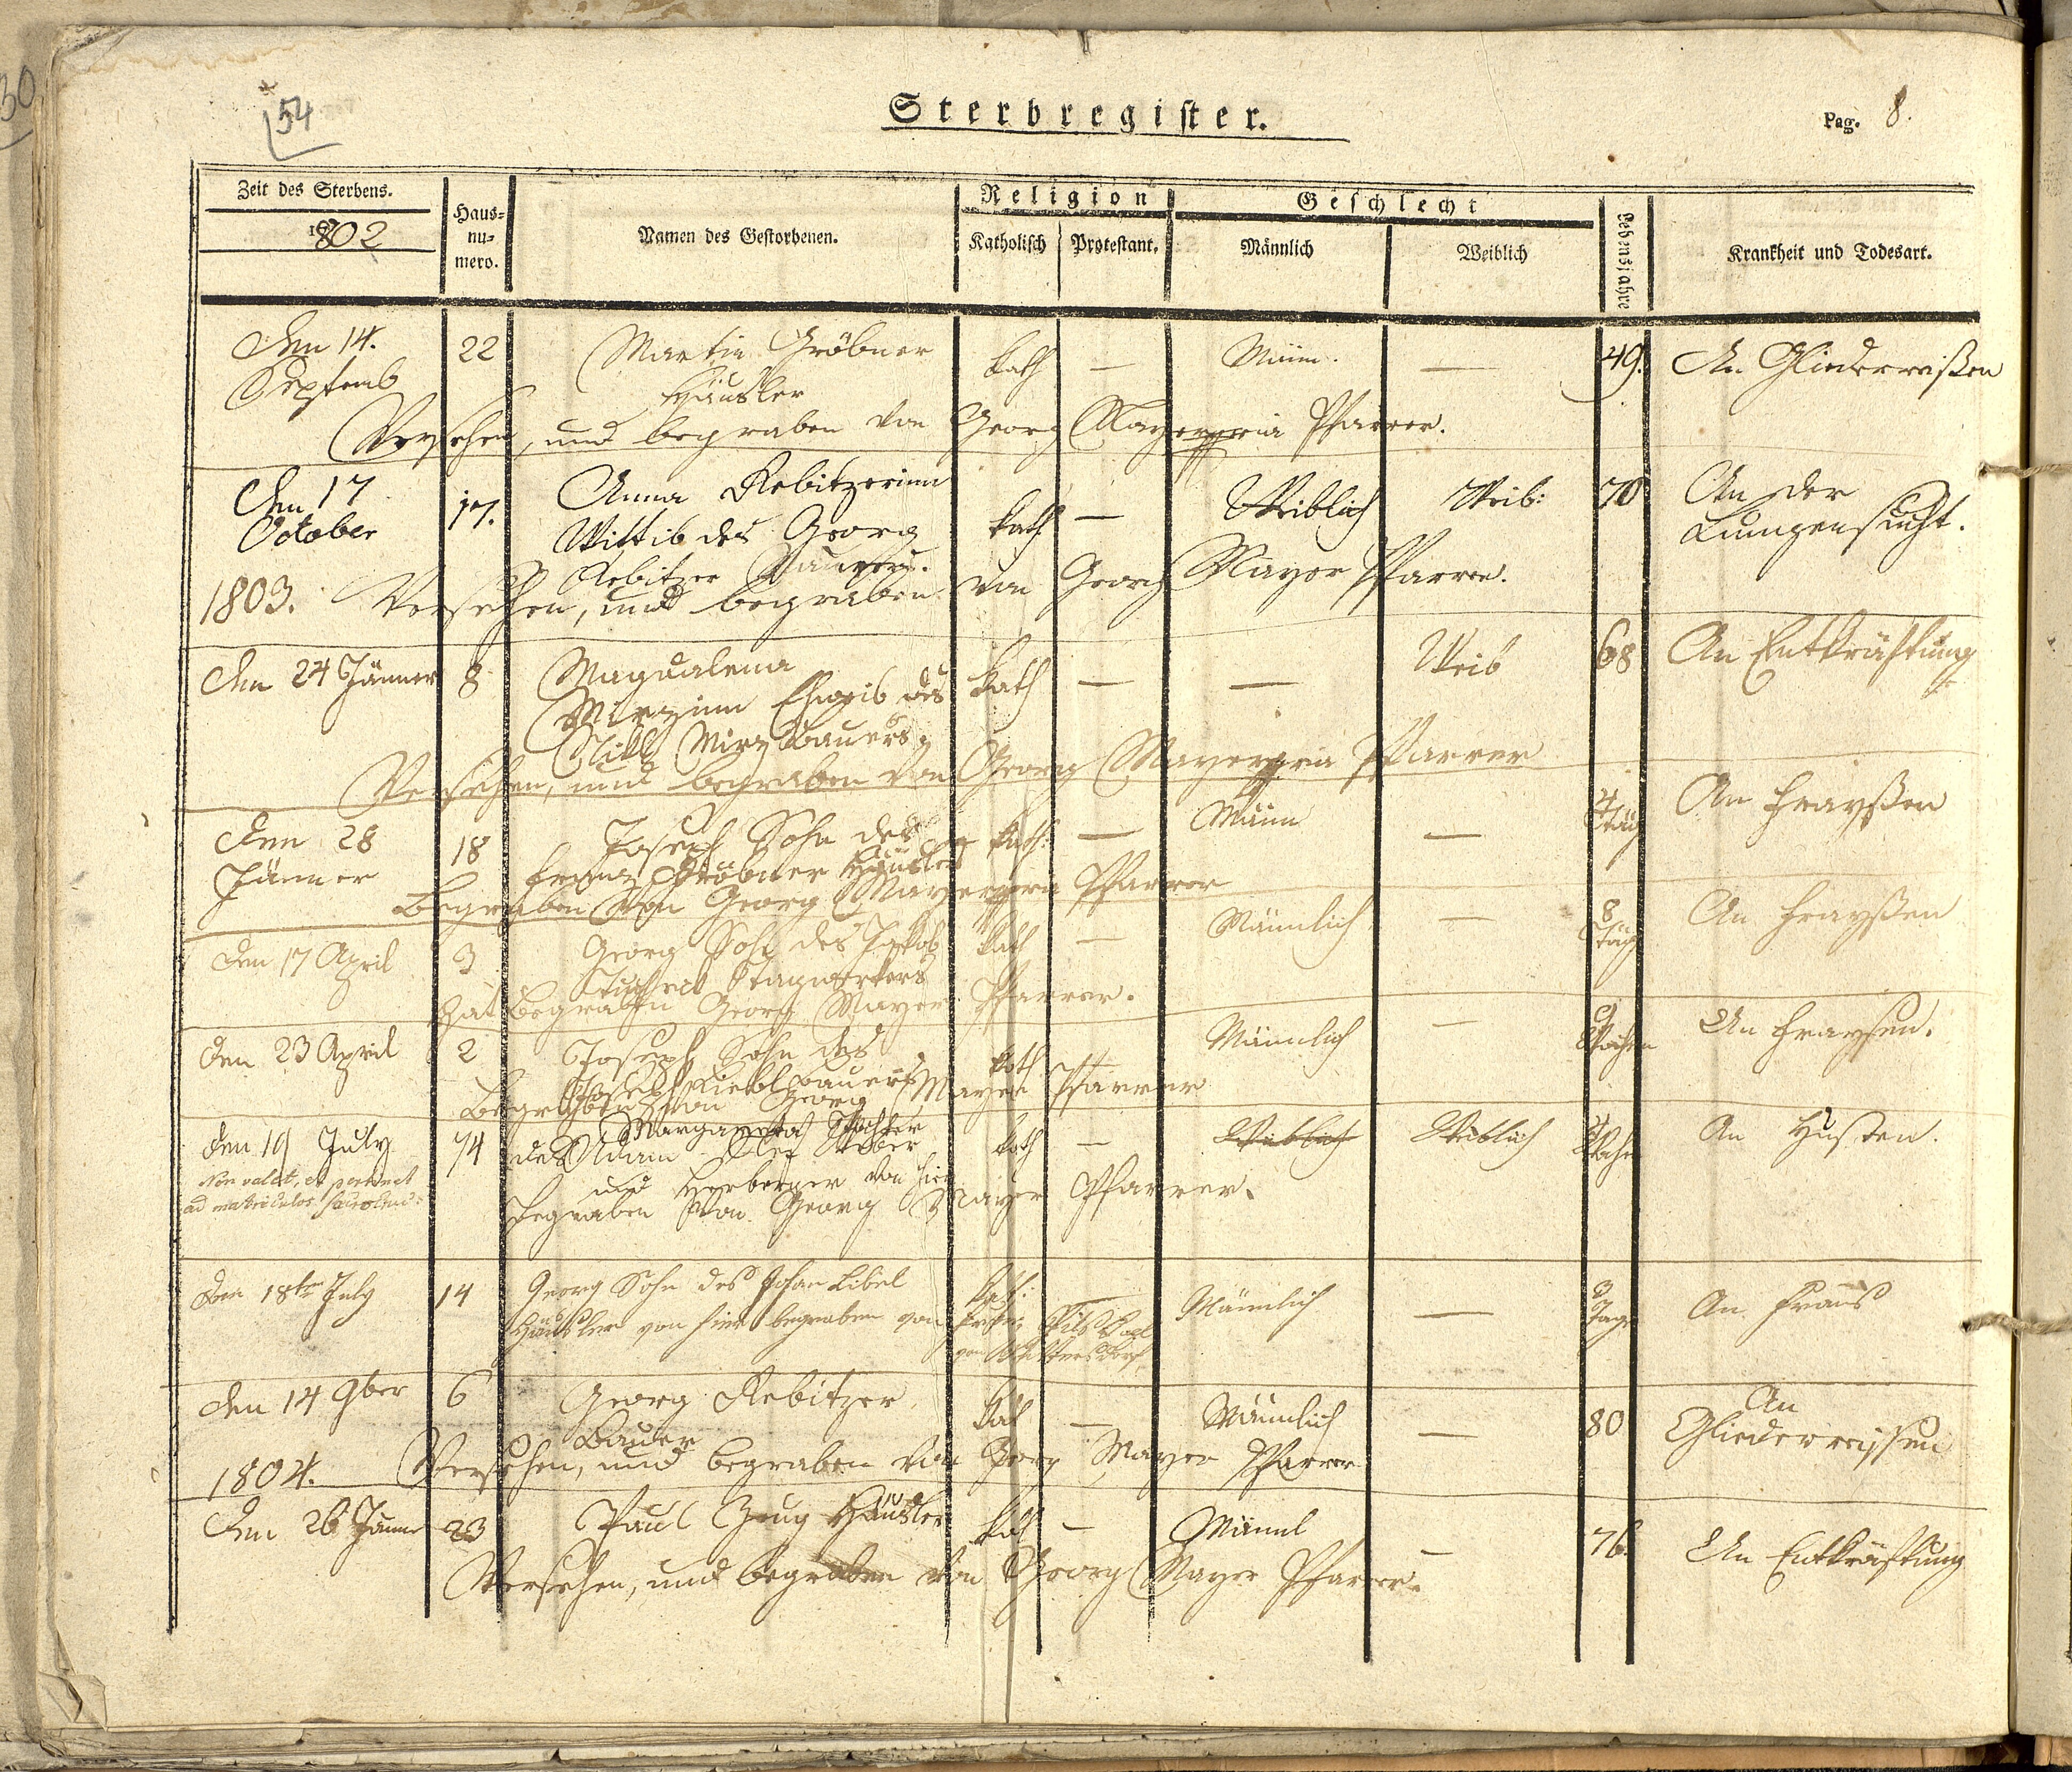 30
54
Sterbregister.
Pag. 8.
Zeit des Sterbens.
1802
Haus=
nu=
mero.
Namen des Gestorbenen.
Religion
Katholisch
Protestant.
Geschlecht
Männlich
Weiblich
Lebensjahre
Krankheit und Todesart.
Den 14. 22 Martin Gröbner kath — Män. — 49. An Gliederreißen
Septemb Häusler
Versehen, und begraben von Georg Mayer Pfarrer.
Den 17 17. Anna Rebitzerinn kath — Weiblich Weib: 70 An der
October Wittib des Georg Lungensucht.
Rebitzer Bauers.
1803. Versehen, und begraben von Georg Mayer Pfarrer.
Den 24 Jänner 8 Magdalena kath — — Weib 68 An Entkräftung
Eheweib des
Bauers
Versehen, und begraben von Georg Mayer Pfarrer
Den 28 18 Joseph Sohn des kath: — Män — 4 Täg An Frayßen
Jänner Franz Gröbner Häusler
Begraben von Georg Mayer Pfarrer
Den 17 April 3 Georg Sohn des Jakob kath — Männlich — 8 Täg An Frayßen
Tagwerkers
hat begraben Georg Mayer Pfarrer.
Den 23 April 2 Joseph Sohn des kath Männlich — 9 Wochen An Fraysen.
Joseph Bauers
Begraben von Georg Mayer Pfarrer
Den 19 July 14 Margareta Tochter kath — Weiblich Weiblich An Husten.
des Adam
Non valet, et
ad
und Herberger von hier
begraben von Georg Mayer Pfarrer.
Den 18ten July 14 Georg Sohn des Johan Libel kath: — Männlich — 3 Tage An Frais
Häusler von hier begraben von
von
Den 14 9ber 6 Georg Rebitzer kath — Männlich — 80 An
Bauer Gliederreissen
Versehen, und begraben von Georg Mayer Pfarrer
1804.
Den 26 Jänner 23 Paul Häusler kath — Mänl — 76. An Entkräftung
Versehen, und begraben von Georg Mayer Pfarrer.